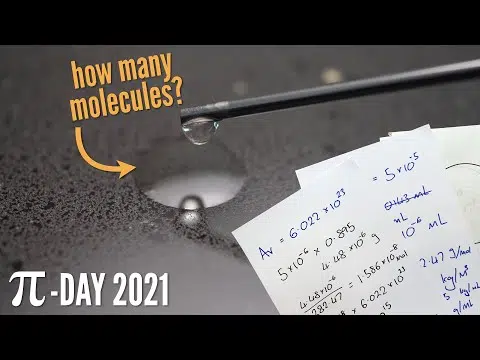 how many
molecules?
π-DAY 2021
Av = 6.022×10²³
5×10⁻⁶ × 0.895
4.48×10⁻⁶ g
4.48×10⁻⁶
282.47
= 1.586×10⁻⁸ mol
× 6.022×10²³
= 5×10⁻⁵
mL
10⁻⁶ mL
2.47 g/mol
kg/m³
5 kg/mL
g/mL